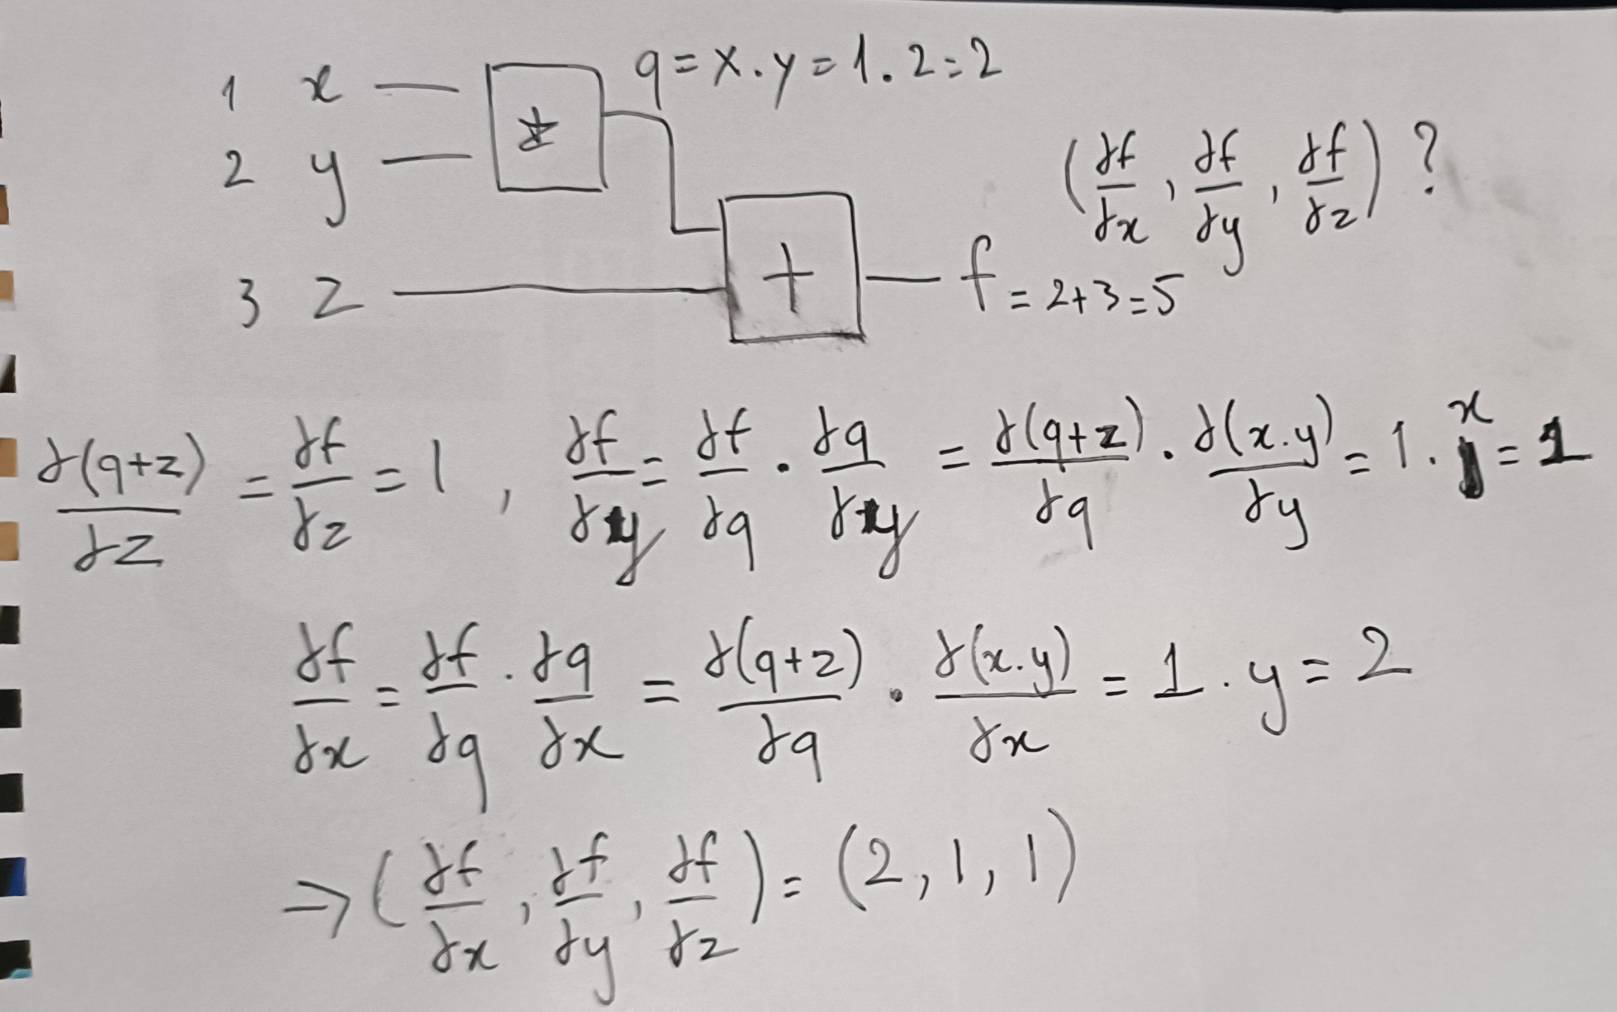 1 x
2 y
3 z
*
q = x.y = 1.2 = 2
+
f = 2+3 = 5
(∂f/∂x, ∂f/∂y, ∂f/∂z) ?
∂(q+z)/∂z = ∂f/∂z = 1, ∂f/∂y = ∂f/∂q . ∂q/∂y = ∂(q+z)/∂q . ∂(x.y)/∂y = 1.x = 1
∂f/∂x = ∂f/∂q . ∂q/∂x = ∂(q+z)/∂q . ∂(x.y)/∂x = 1.y = 2
⇒ (∂f/∂x, ∂f/∂y, ∂f/∂z) = (2, 1, 1)